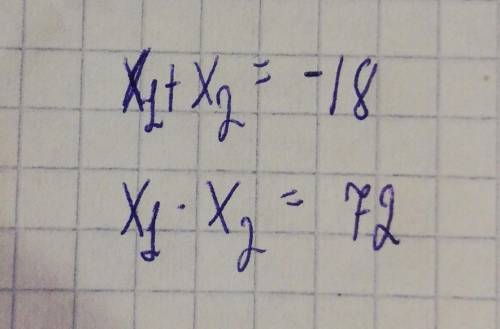 x₁+x₂ = -18
x₁ · x₂ = 72